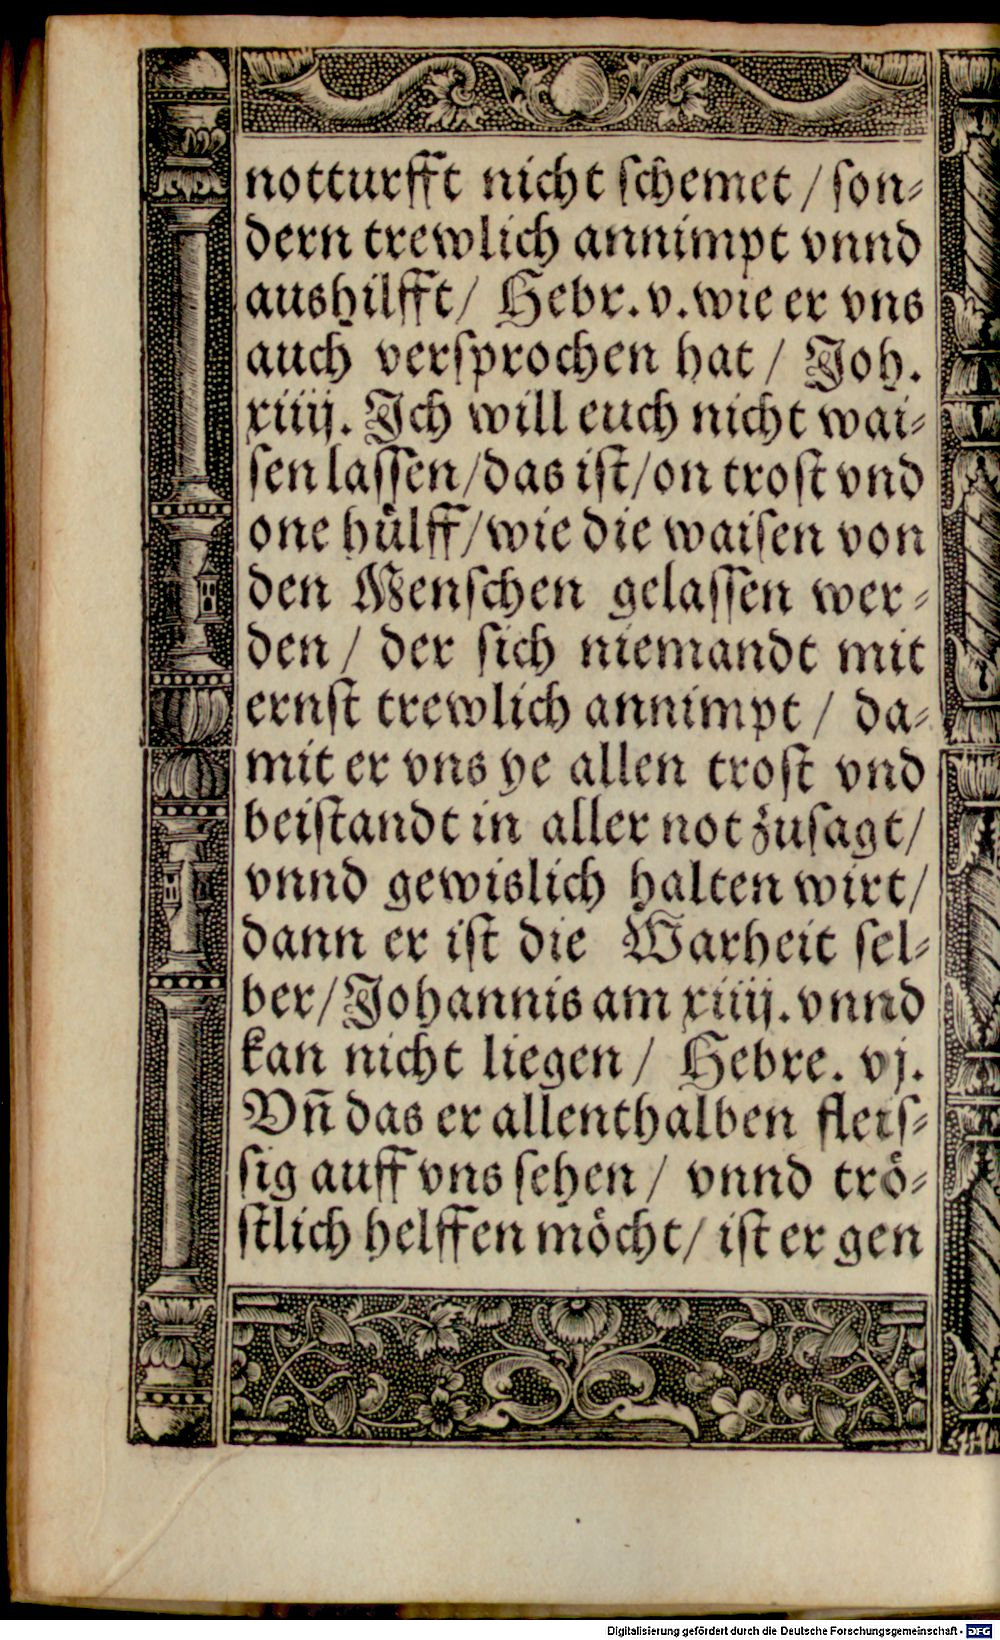 notturfft nicht schemet / son⸗
dern trewlich annimpt vnnd
aushilfft / Hebr. v. wie er vns
auch versprochen hat / Joh.
xiiij. Ich will euch nicht wai⸗
sen lassen / das ist / on trost vnd
one hülff / wie die waisen von
den Menschen gelassen wer⸗
den / der sich niemandt mit
ernst trewlich annimpt / da⸗
mit er vns ye allen trost vnd
beistandt in aller not zusagt /
vnnd gewislich halten wirt /
dann er ist die Warheit sel⸗
ber / Johannis am xiiij. vnnd
kan nicht liegen / Hebre. vj.
Vñ das er allenthalben fleis⸗
sig auff vns sehen / vnnd trö⸗
stlich helffen möcht / ist er gen
Digitalisierung gefördert durch die Deutsche Forschungsgemeinschaft - DFG